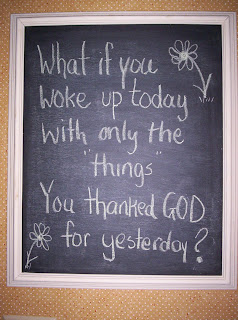 What if you
woke up today
with only the
"things"
You thanked GOD
for yesterday?